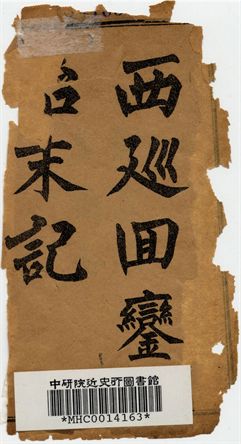 西廵回鑾
始末記
中研院近史所圖書館
*MHC0014163*